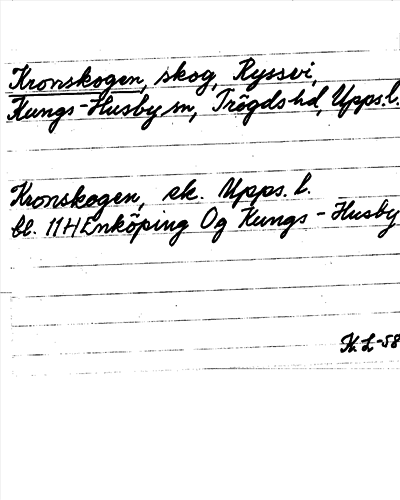 Kronskogen, skog, Ryssvi,
Kungs-Husby sn, Trögds hd, Upps. l.
Kronskogen, ek. Upps. l.
bl. 11H Enköping Og Kungs-Husby
K.L-58